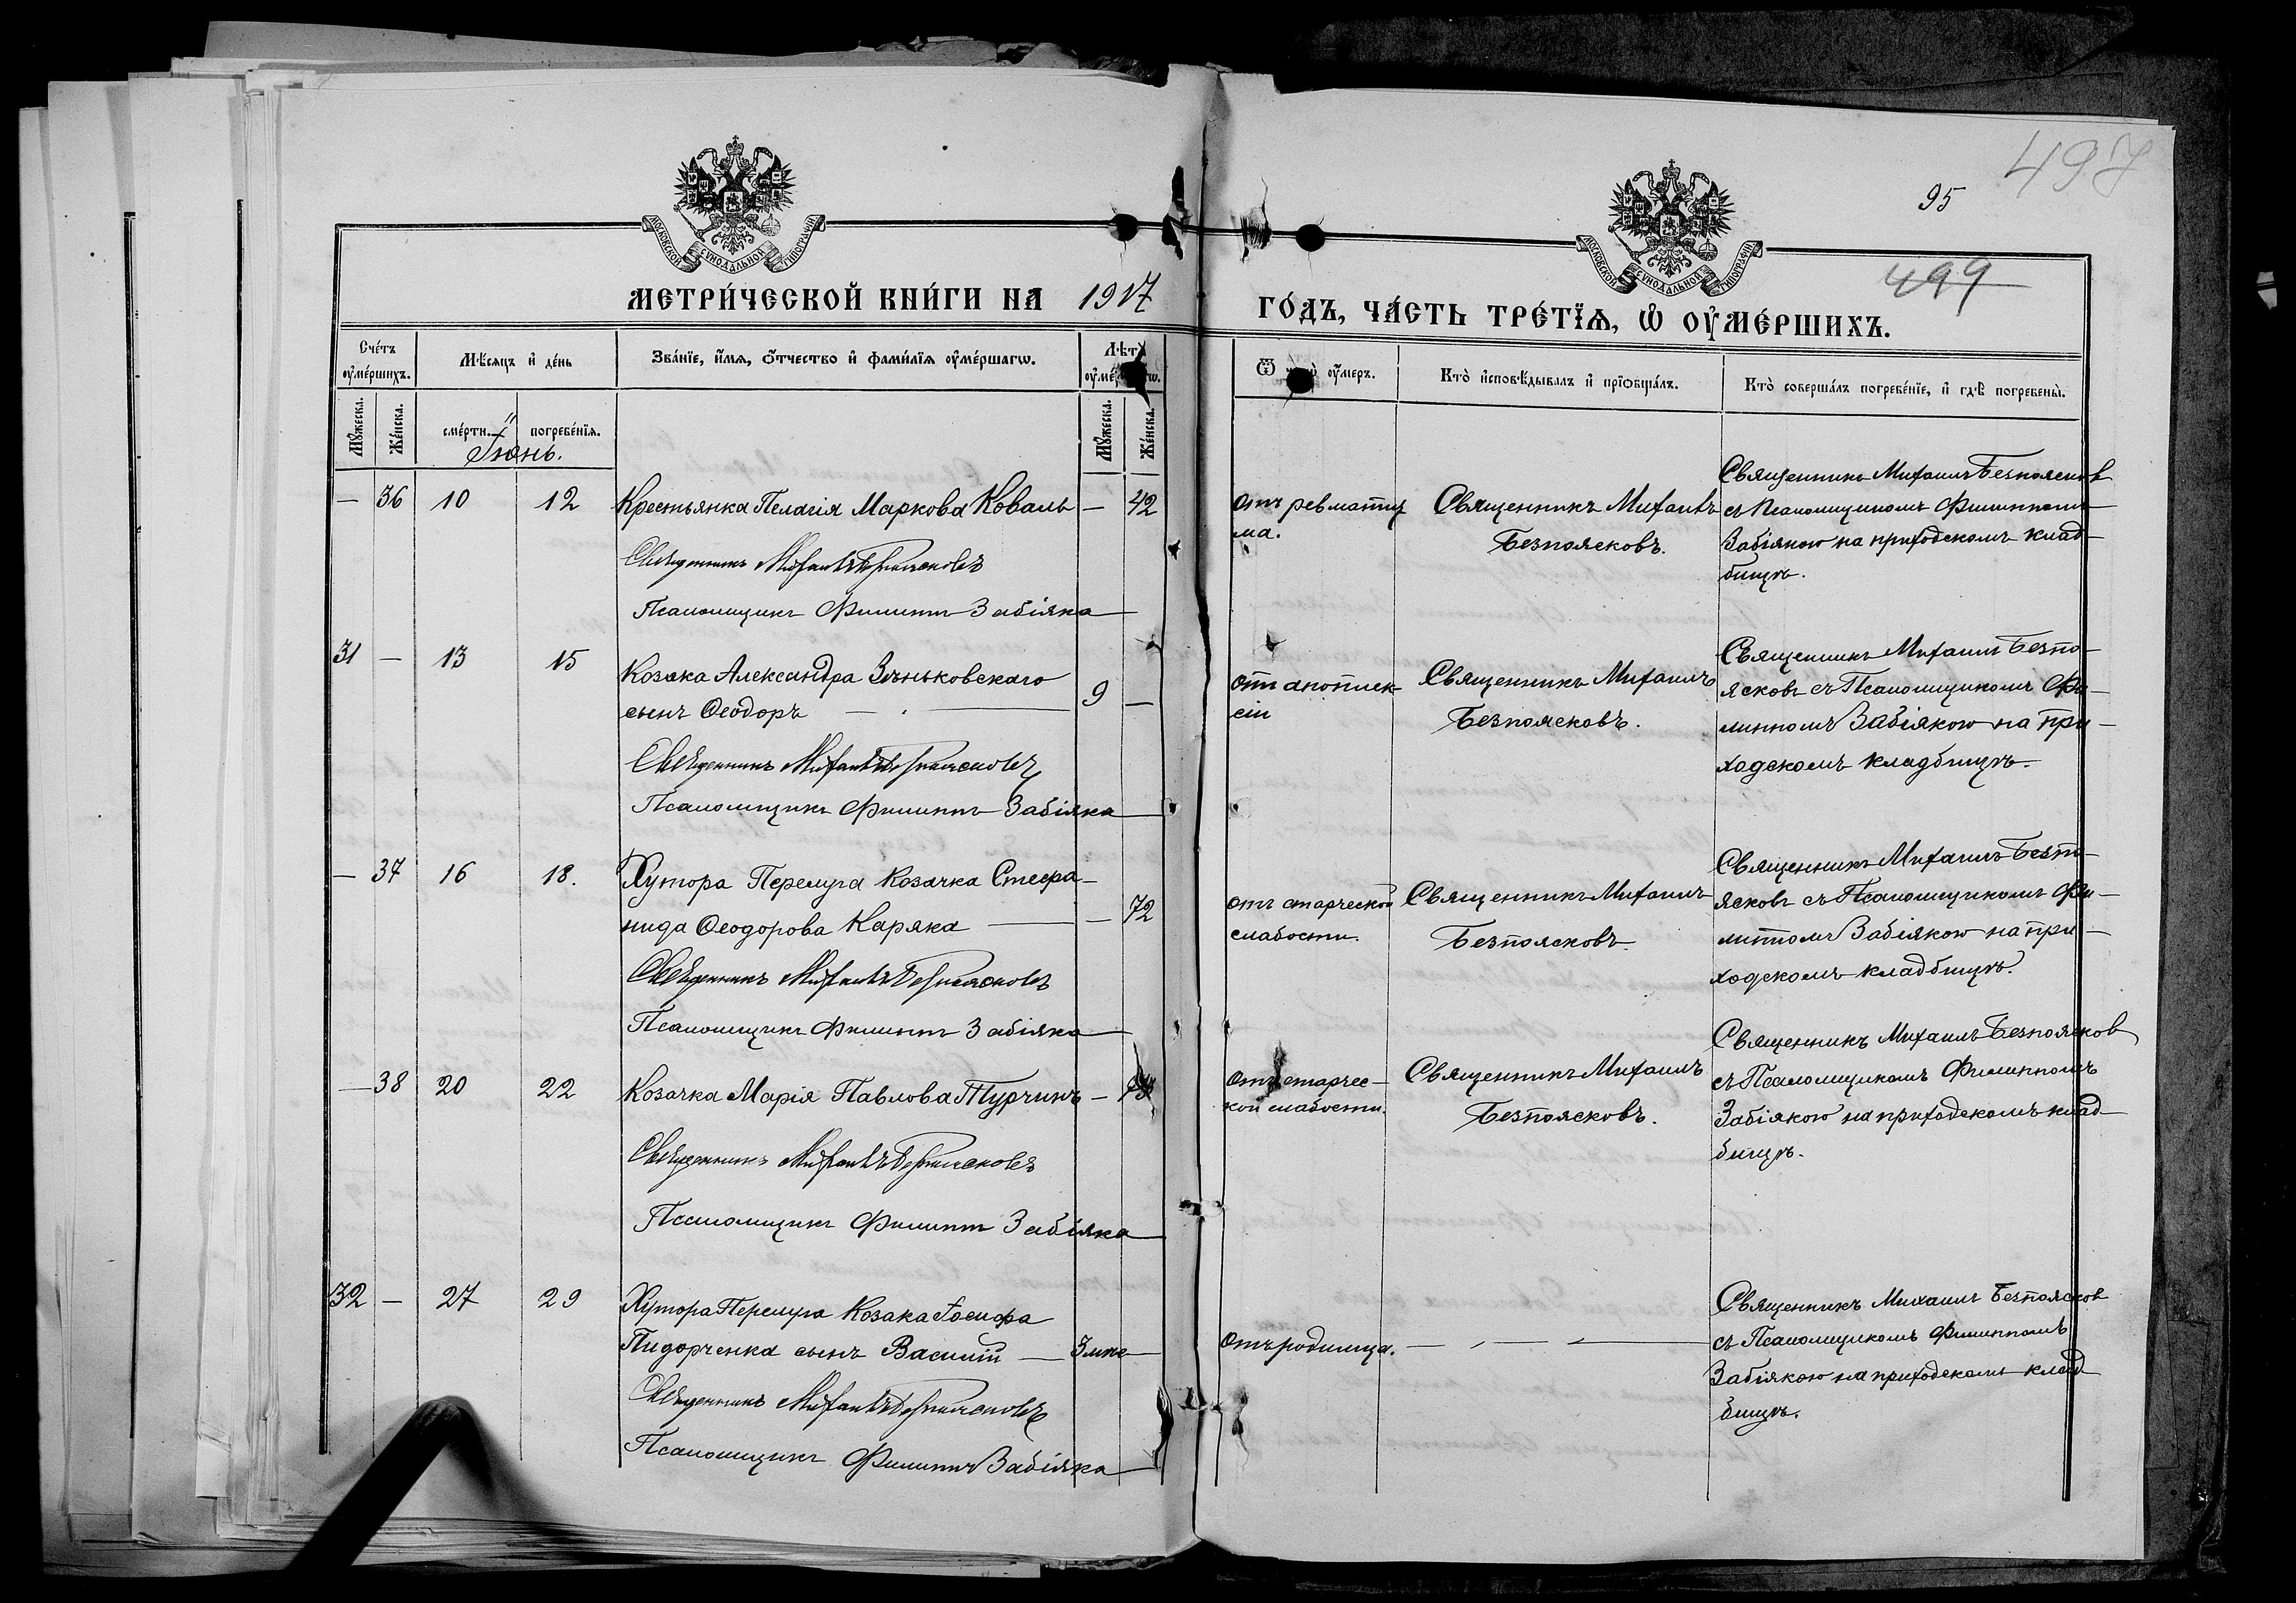 497
95
499
МОСКОВСКОЙ СѴНОДАЛЬНОЙ ТИПОГРАФІИ
МОСКОВСКОЙ СѴНОДАЛЬНОЙ ТИПОГРАФІИ
МЕТРИ́ЧЕСКОЙ КНИ́ГИ НА 1917
ГО́ДЪ, ЧА́СТЬ ТРЕ́ТЇѦ, Ѡ҆ ОУ҆МЕ́РШИХЪ.
Сче́тъ оу҆ме́ршихъ.
Мѣ́сѧцъ и҆ де́нь
Зва́нїе, и҆́мѧ, ѻ҆́тчество и҆ фами́лїѧ оу҆ме́ршагѡ.
Лѣта
Ѿ оу҆́меръ.
Кто̀ и҆сповѣ́дывалъ и҆ прїѡбща́лъ.
Кто̀ соверша́лъ погребе́нїе, и҆ гдѣ̀ погребены̀.
Мꙋ́жеска.
Же́нска.
сме́рти.
погребе́нїѧ.
Мꙋ́жеска.
Же́нска.
Іюнь.
— 36 10 12 Крестьянка Пелагія Маркова Коваль — 42
Священникъ Михаилъ Безпоясковъ
Псаломщикъ Филиппъ Забіяка
отъ ревматиз
ма.
Священникъ Михаилъ
Безпоясковъ.
Священникъ Михаилъ Безпоясков
съ Псаломщикомъ Филиппомъ
Забіякою на приходскомъ клад-
бищѣ.
31 — 13 15
Козака Александра Зѣньковскаго
сынъ Ѳеодоръ — 9 —
Священникъ Михаилъ Безпоясковъ
Псаломщикъ Филиппъ Забіяка
отъ апоплек-
сіи
Священникъ Михаилъ
Безпоясковъ.
Священникъ Михаилъ Безпо-
ясковъ съ Псаломщикомъ Фи-
липпомъ Забіякою на при-
ходскомъ кладбищѣ.
— 37 16 18. Хутора Перелуга Козачка Стефа-
нида Ѳеодорова Каряка — — 72
Священникъ Михаилъ Безпоясковъ
Псаломщикъ Филиппъ Забіяка
отъ старческой
слабости.
Священникъ Михаилъ
Безпоясковъ.
Священникъ Михаилъ Безпо-
ясковъ съ Псаломщикомъ Фи-
липпомъ Забіякою на при-
ходскомъ кладбищѣ.
— 38 20 22 Козачка Марія Павлова Турчинъ —
Священникъ Михаилъ Безпоясковъ
Псаломщикъ Филиппъ Забіяка
Отъ старчес-
кой слабости.
Священникъ Михаилъ
Безпоясковъ.
Священникъ Михаилъ Безпоясков
съ Псаломщикомъ Филиппомъ
Забіякою на приходскомъ клад-
бищѣ.
32 — 27 29 Хутора Перелуга Козака Іосифа
Пидорченка сынъ Василій —
Священникъ Михаилъ Безпоясковъ
Псаломщикъ Филиппъ Забіяка
Отъ родимца. — — —
Священникъ Михаилъ Безпоясков
съ Псаломщикомъ Филиппомъ
Забіякою на приходскомъ клад
бищѣ.